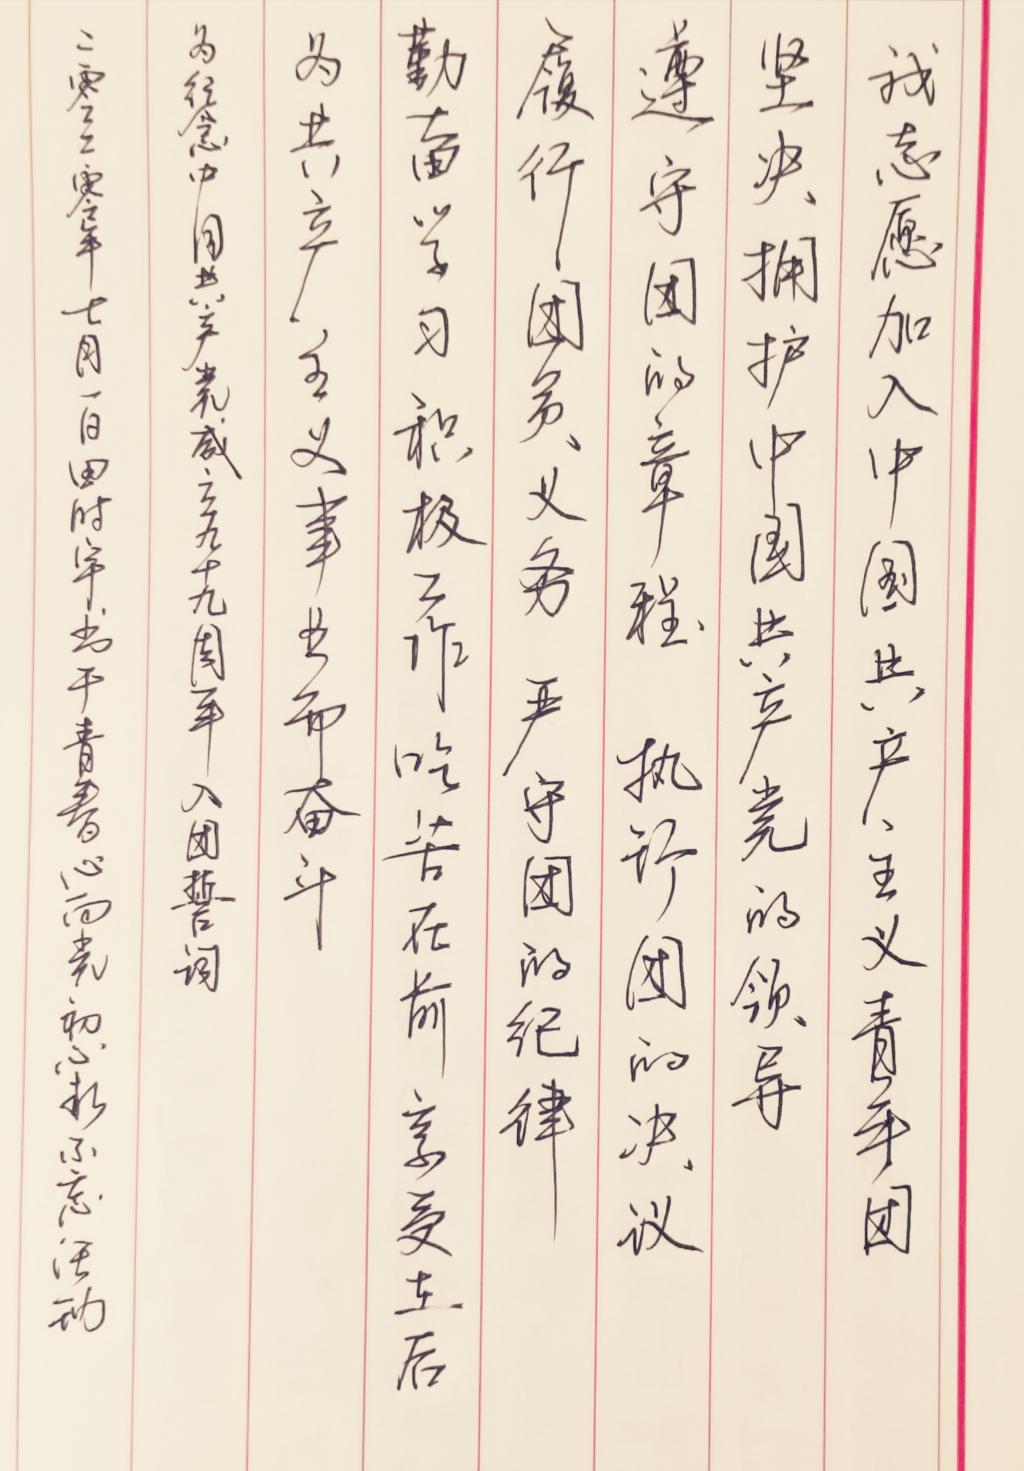 我志愿加入中国共产主义青年团
坚决拥护中国共产党的领导
遵守团的章程 执行团的决议
履行团员义务 严守团的纪律
勤奋学习 积极工作 吃苦在前 享受在后
为共产主义事业而奋斗
为纪念中国共产党成立九十九周年 入团誓词
二零二零年七月一日田时宇书于青春心向党初心不忘活动